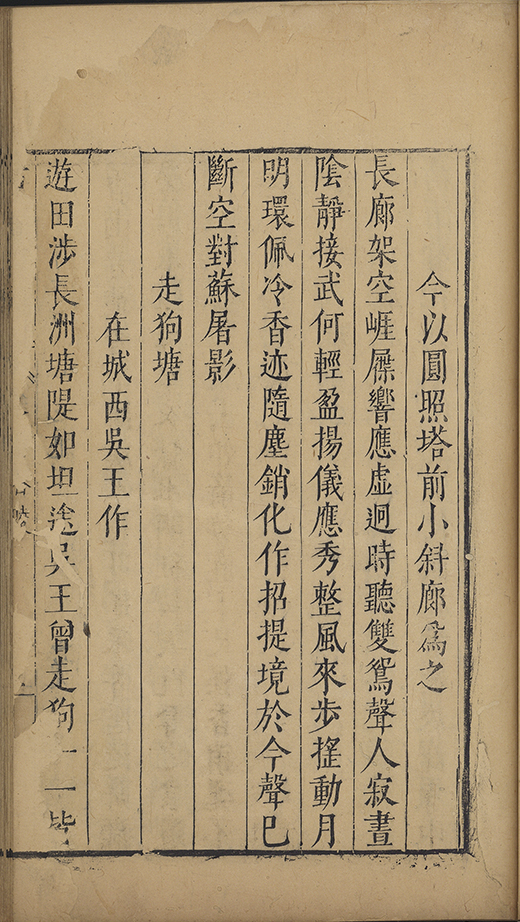 今以圓照塔前小斜廊爲之
長廊架空崕屧響應虛迴時聽雙鴛聲人寂晝
陰靜接武何輕盈揚儀應秀整風來步搖動月
明環佩冷香迹隨塵銷化作招提境於今聲已
斷空對蘇屠影
走狗塘
在城西吳王作
遊田涉長洲塘隄如坦途吳王曾走狗